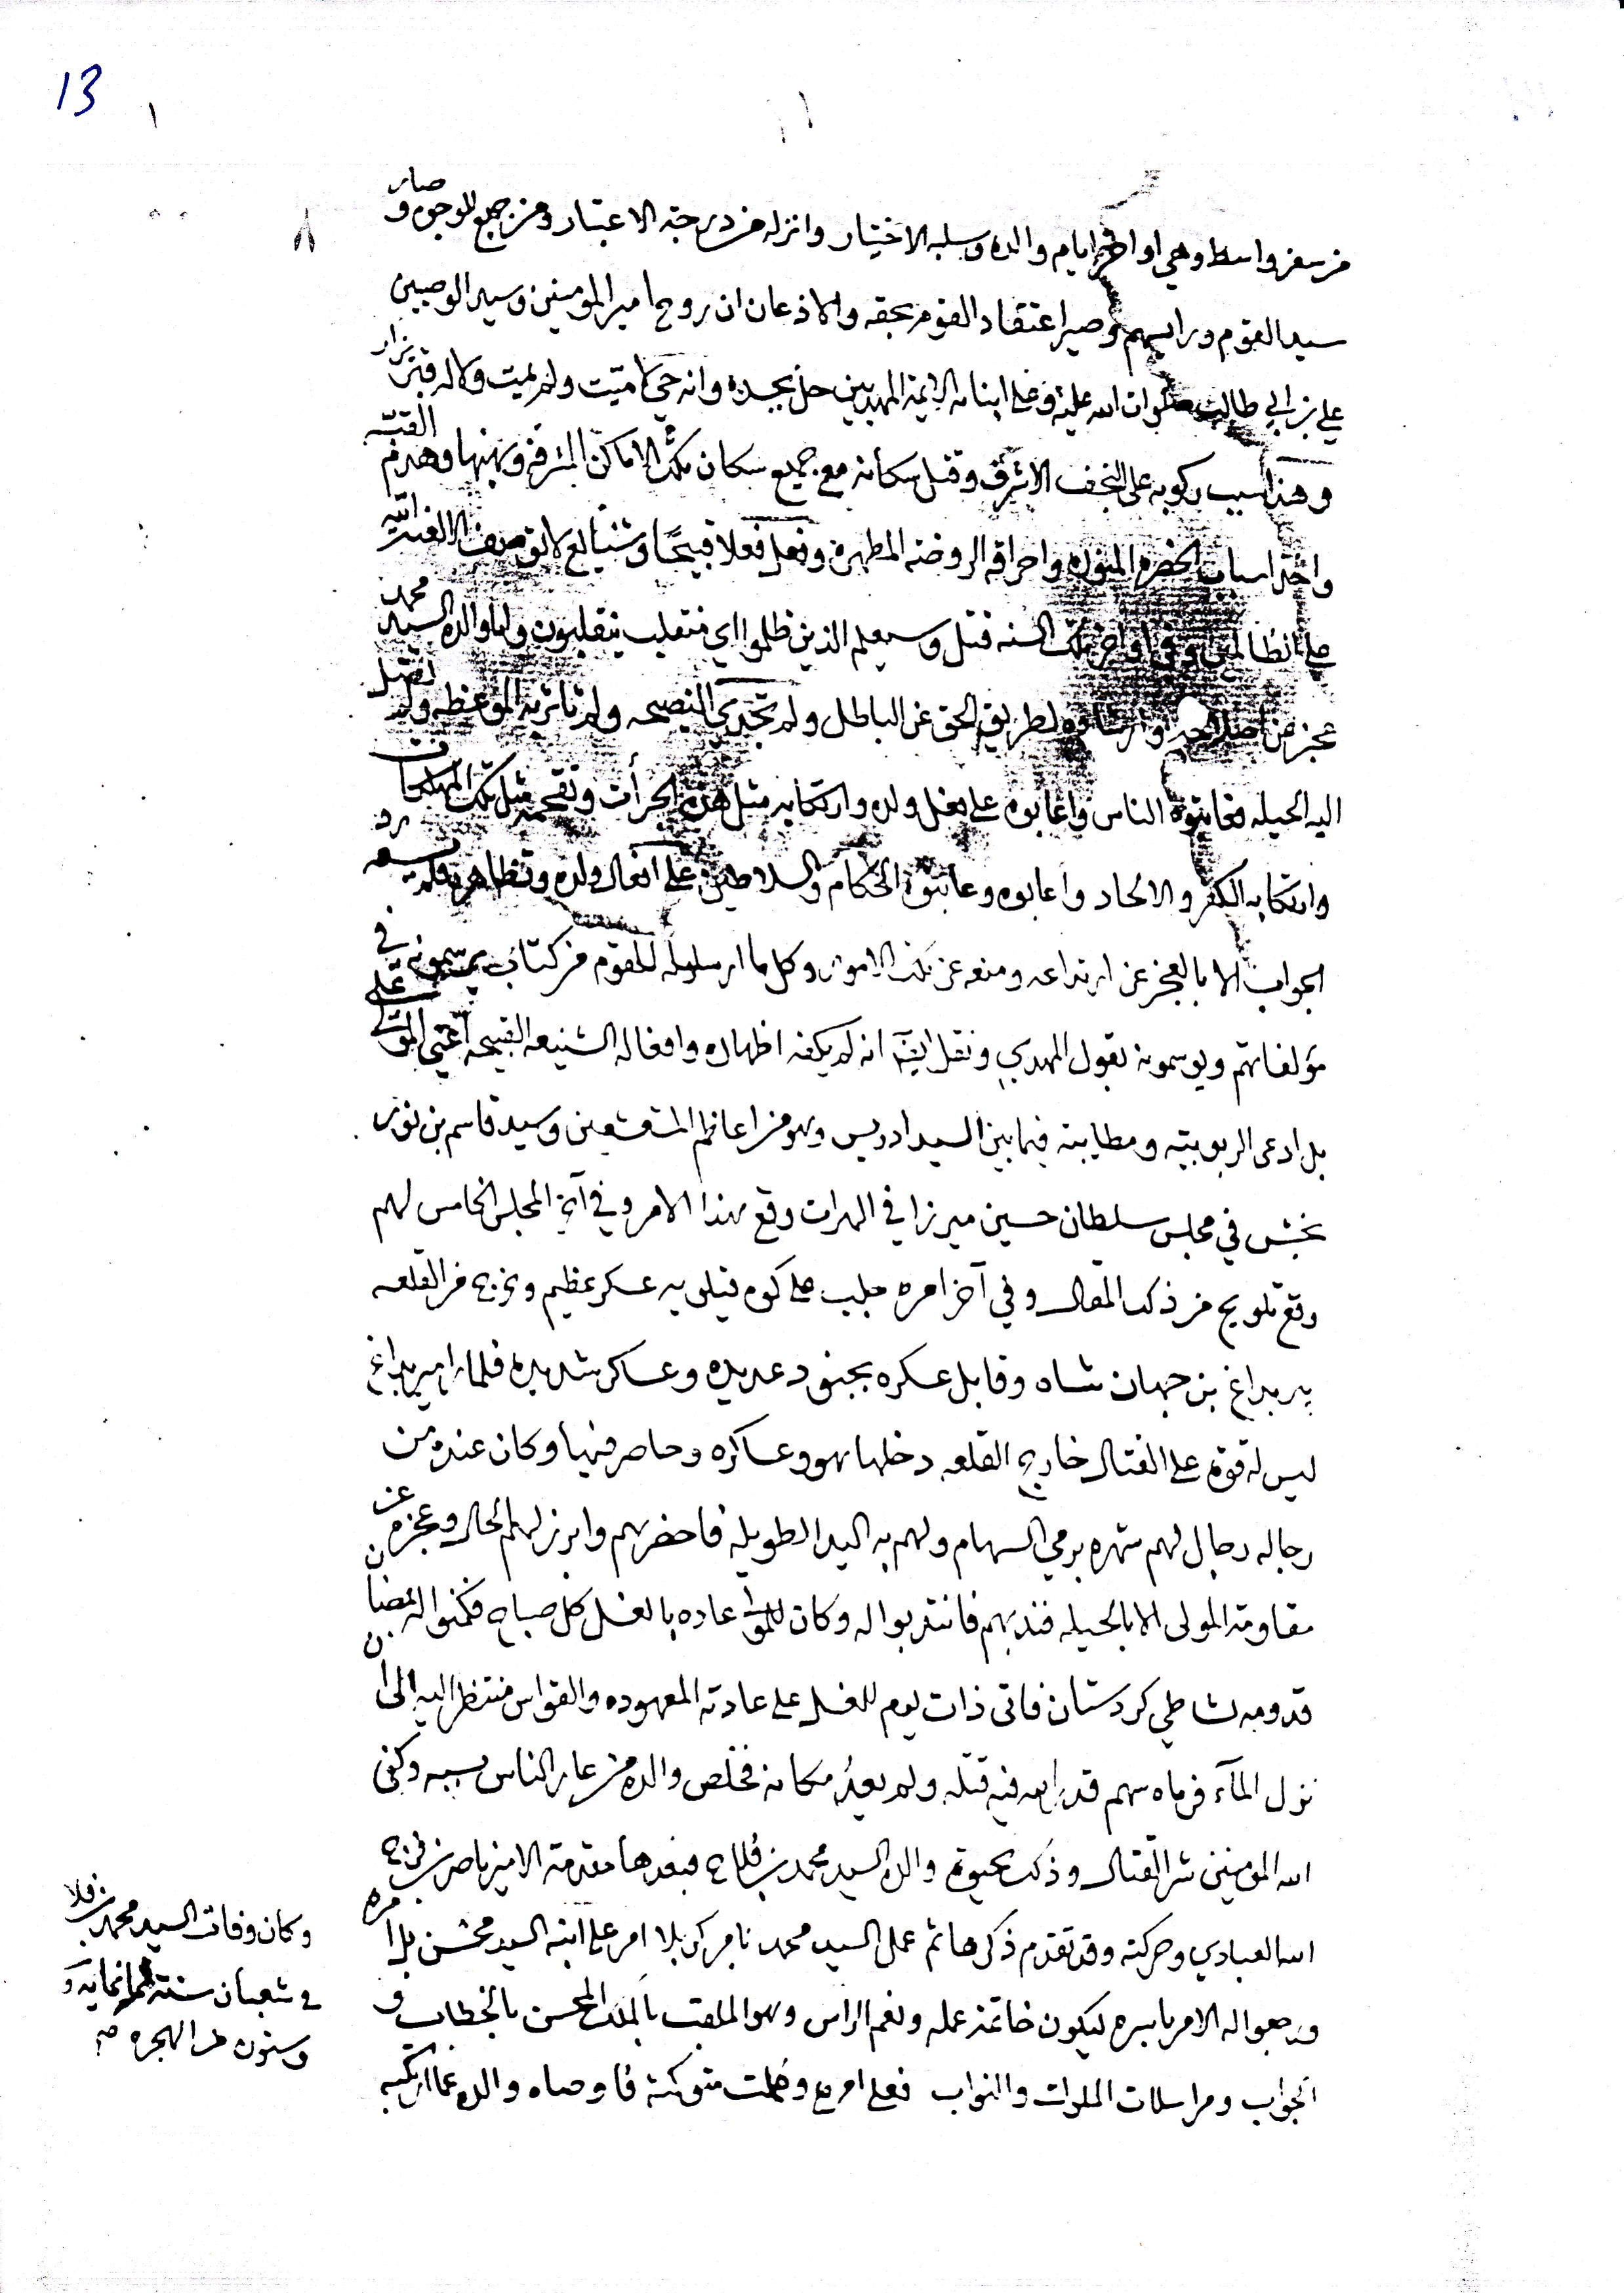 13
من سفر واسط وهي اواخر ايام والده وسلبه الاختيار وانزله من درجة الاعتبار ومن جميع الوجوه وصار
سيد القوم ورايسهم وصير اعتقاد القوم بحقه والاذعان ان روح امير المومنين وسيد الوصيين
علي بن ابي طالب صلوات الله عليه وعلى ابنائه الايمة المهديين حل بجسده وانه حي لا ميت ولم يمت ولا له قبر يزار
وهذا سبب ركوبه على النجف الاشرف وقتل سكانه مع جميع سكان تلك الاماكن المشرفه ونهبها وهدم القبه
واحراقه الروضه المطهرة وفعل فعلا قبيحًا
على الظالمين وفي اواخر تلك السنه قتل وسيعلم الذين ظلموا اي منقلب ينقلبون ولما والده السيد محمد
عجز عن اصلاحه وارشاده لطريق الحق عن الباطل ولم تجدي النصيحه ولم تاثر به الموعظه ولم تصل
اليه الحيله فعاتبوه الناس واعابوه على فعل ولده وارتكابه مثل هذه الجرأت وتقحمه مثل تلك المهلكات
وارتكابه الكفر والالحاد واعابوه وعاتبوه الحكام والسلاطين على افعال ولده وتظاهره فلم يسعه رد
الجواب الا بالعجز عن ارتداعه ومنعه عن تلك الامور وكل ما ارسلوله للقوم من كتاب يرسمونه في
مؤلفاتهم ويوسمونه بقول المهدي ونقل ايضا انه لم يكفه اظهاره وافعاله الشنيعه القبيحه اعني المولى علي
بل ادعى الربوبيته ومطايبة فيما بين السيد ادريس وهو من اعاظم المتقشعين وسيد قاسم بن نور
بخش في مجلس سلطان حسين ميرزا في الهرات وقع بهذا الامر وفي آخر المجلس الخامس لهم
وقع تلويح من ذلك المقال وفي آخر امره جلب على كوه قيلويه عسكر عظيم وخرج من القلعه
پير بداغ بن جهان شاه وقابل عسكره بجنود عديده وعساكر شديده فلما را پير بداغ
ليس له قوة على القتال خارج القلعه دخلها هو وعساكره وحاصر فيها وكان عنده من
رجاله رجال لهم شهره برمي السهام ولهم به اليد الطويله فاحضرهم وابرز لهم الحال وعجزه عن
مقاومة المولى الا بالحيله فندبهم فانتدبوا له وكان للمولى عاده بالغسل كل صباح فكمنوا له
قدومه لشاطي كردستان فاتى ذات يوم للغسل على عادته المعهوده والقواس منتظر اليه الى ان
نزل المآء فرماه سهم قدر الله فيه قتله ولم يعدُ مكانه فخلص والده من عار الناس بسببه وكفى
الله المومنين شر القتال وذلك بحيوة والده السيد محمد بن فلاح فبعدها مقدمة الامير ناصر بن فرج
الله العبادي وحركته وقد تقدم ذكرها ثم عمل السيد محمد امر على ابنه السيد محسن بل امره
ورجعوا له الامر باسره ليكون خاتمة عمله ونعم الراس وهو الملقب بالملك المحسن بالخطاب و
الجواب ومراسلات الملوك والنواب فعلى امره وضلت شوكته فاوصاه والده عما ارتكبه
وكان وفات السيد محمد بن فلاح
في شعبان سنة ثمانمايه و
وستون من الهجره صح